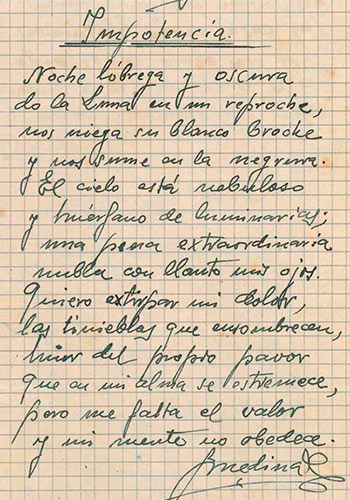 Impotencia.
Noche lóbrega y oscura
do la Luna en un reproche,
nos niega su blanco broche
y nos sume en la negrura.
El cielo está nebuloso
y huérfano de luminarias;
una pena extraordinaria
nubla con llanto mis ojos.
Quiero extirpar mi dolor,
las tinieblas que ensombrecen,
huir del propio pavor
que en mi alma se estremece,
pero me falta el valor
y mi mente no obedece.
Jmedina